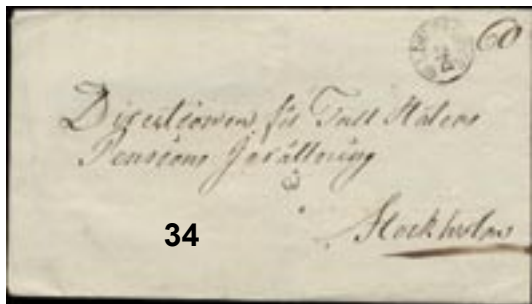 60
Directionen för Tull Statens
Pensions Inrättning
i
Stockholm
34